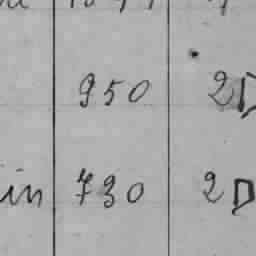 950 2D
in 730 2D